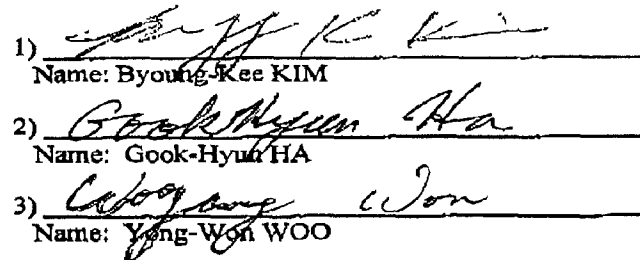 1)
Name: Byoung-Kee KIM
2) Gook Hyun Ha
Name: Gook-Hyun HA
3) Woo Yong Won
Name: Yong-Won WOO